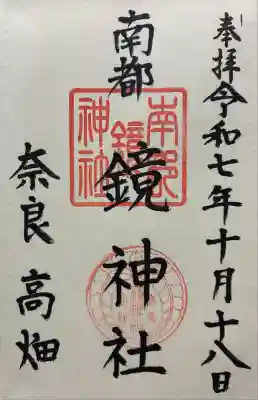 奉拝 令和七年十月十八日
南都
鏡神社
奈良 高畑
南都
鏡
神社